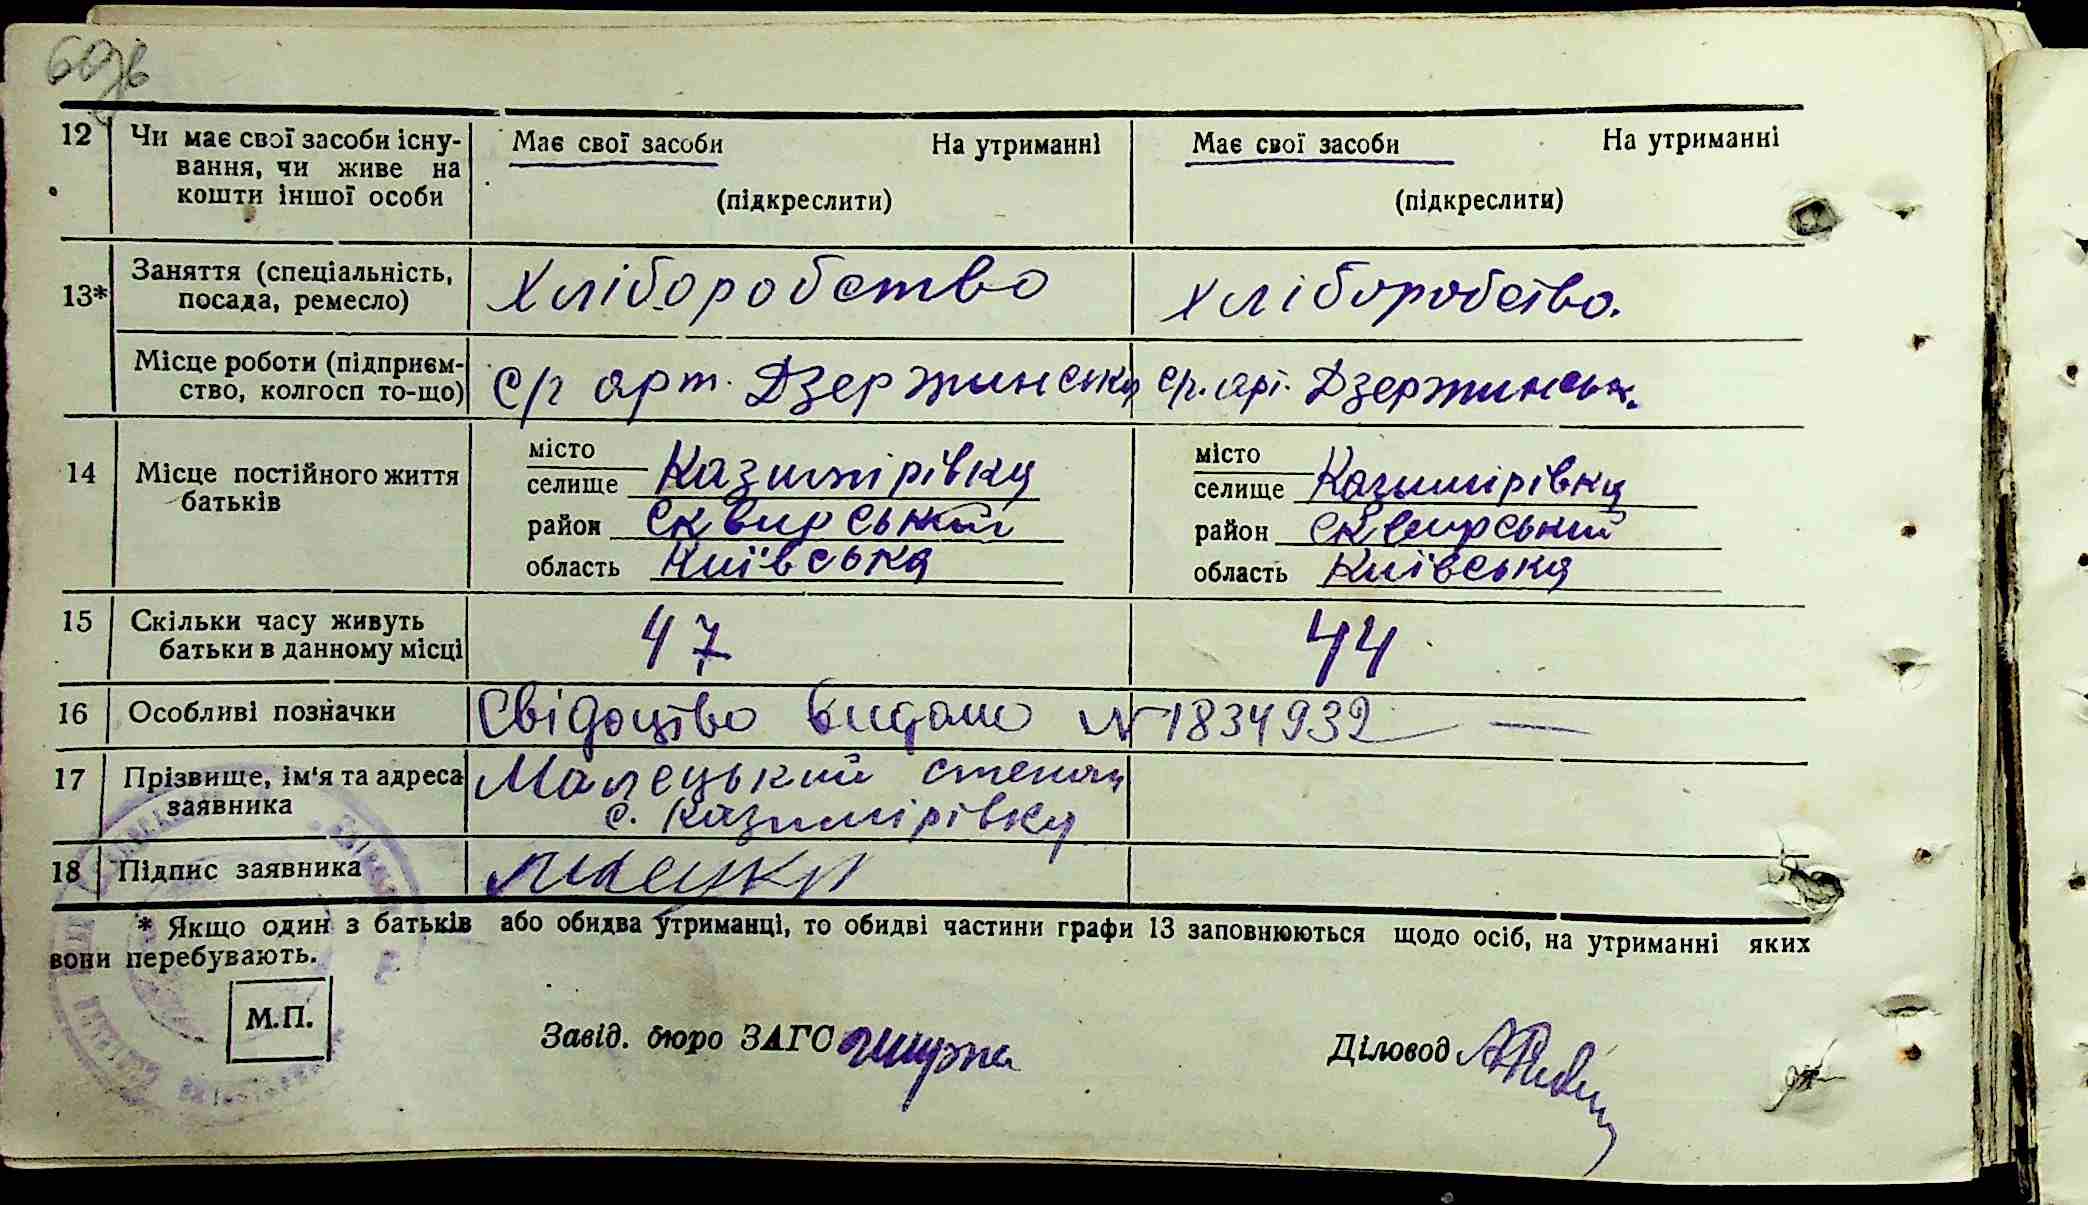 60зв
12 Чи має свої засоби існу- Має свої засоби На утриманні Має свої засоби На утриманні
вання, чи живе на
кошти іншої особи (підкреслити) (підкреслити)
13* Заняття (спеціальність, Хліборобство Хліборобство.
посада, ремесло)
Місце роботи (підприєм- с/г арт. Дзержинська с/г. арт. Дзержинськ.
ство, колгосп то-що)
14 Місце постійного життя місто місто
батьків селище Казимірівка селище Казимірівка
район Сквирський район Сквирський
область Київська область Київська
15 Скільки часу живуть 47 44
батьки в данному місці
16 Особливі позначки Свідоцтво видано № 1834932 —
17 Прізвище, ім'я та адреса Малецький Степан
заявника с. Казимірівка
18 Підпис заявника
* Якщо один з батьків або обидва утриманці, то обидві частини графи 13 заповнюються щодо осіб, на утриманні яких
вони перебувають.
М.П.
Завід. бюро ЗАГС Діловод